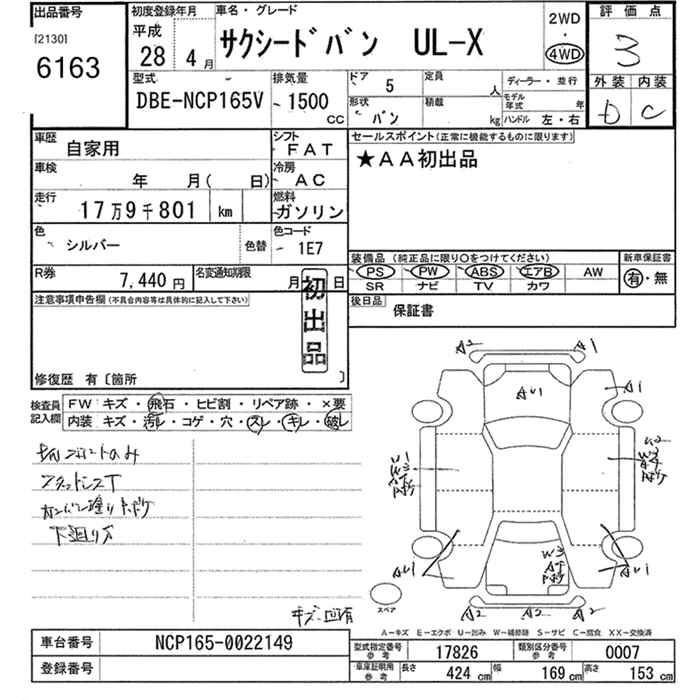 出品番号
[2130]
6163
初度登録年月
平成
28年 4月
車名・グレード
サクシードバン UL-X
2WD
・
4WD
評価点
3
外装 内装
D C
型式
DBE-NCP165V
排気量
1500 CC
ドア 5
定員 人
ディーラー・並行
形状 バン
積載 kg
モデル年式 年
ハンドル 左・右
車歴 自家用
シフト FAT
車検 年 月( 日)
冷房 AC
走行 17万9千801 km
燃料 ガソリン
色 シルバー 色替
色コード 1E7
R券 7,440円
名変通知期限 月 日
セールスポイント(正常に機能するものに限ります)
★AA初出品
装備品 (純正品に限り○をつけてください)
新車保証書
PS PW ABS エアB AW
有・無
SR ナビ TV カワ
後日品 保証書
注意事項申告欄(不具合内容等は具体的に記入して下さい)
初出品
修復歴 有〔箇所 〕
検査員記入欄
FW キズ・飛石・ヒビ割・リペア跡・×要
内装 キズ・汚レ・コゲ・穴・スレ・キレ・破レ
下廻りサ
キズ・凹有
A2 A1
AU1
A1
W3
W2
AU1 AU1
W3
A2 A2 A2
スペア
A-キズ E-エクボ U-凹み W-補修跡 S-サビ C-腐食 XX-交換済
車台番号 NCP165-0022149
登録番号
型式指定番号参考 17826
類別区分番号参考 0007
車庫証明用参考 長さ 424 cm 幅 169 cm 高さ 153 cm